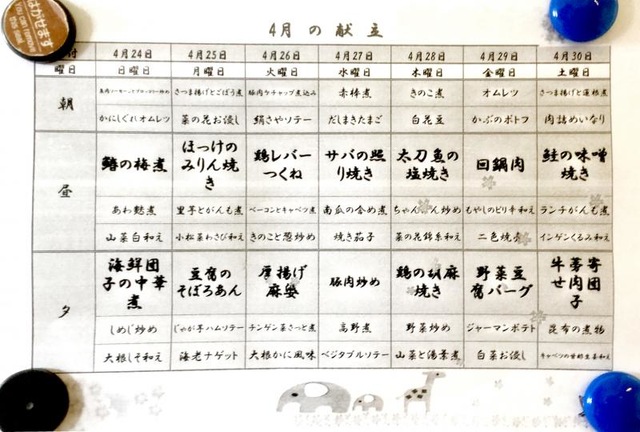 はがせます
YOU CAN REMOVE
THIS SEAL
4月の献立
付 4月24日 4月25日 4月26日 4月27日 4月28日 4月29日 4月30日
曜日 日曜日 月曜日 火曜日 水曜日 木曜日 金曜日 土曜日
朝
さつま揚げとごぼう煮 豚肉ケチャップ煮込み 赤棒煮 きのこ煮 オムレツ さつま揚げと蓮根煮
かにしぐれオムレツ 菜の花お浸し 絹さやソテー だしまきたまご 白花豆 かぶのポトフ 肉詰めいなり
昼
鰆の梅煮 ほっけのみりん焼き 鶏レバーつくね サバの照り焼き 太刀魚の塩焼き 回鍋肉 鮭の味噌焼き
あわ麩煮 里芋とがんも煮 ベーコンとキャベツ煮 南瓜の含め煮 ちゃんちゃん炒め もやしのピリ辛和え ランチがんも煮
山菜白和え 小松菜わさび和え きのこと葱炒め 焼き茄子 菜の花錦糸和え 二色焼売 インゲンくるみ和え
夕
海鮮団子の中華煮 豆腐のそぼろあん 厚揚げ麻婆 豚肉炒め 鶏の胡麻焼き 野菜豆腐バーグ 牛蒡寄せ肉団子
しめじ炒め じゃが芋ハムソテー チンゲン菜さっと煮 高野煮 野菜炒め ジャーマンポテト 昆布の煮物
大根しそ和え 海老ナゲット 大根かに風味 ベジタブルソテー 山菜と湯葉煮 白菜お浸し